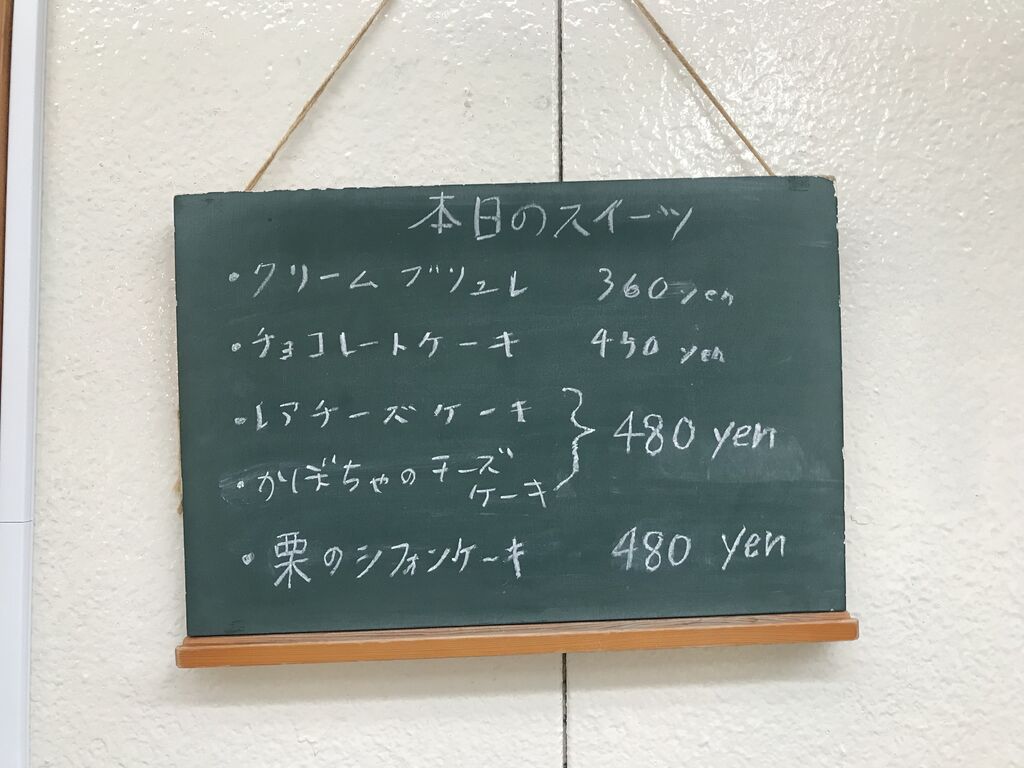 本日のスイーツ
・クリームブリュレ 360 yen
・チョコレートケーキ 450 yen
・レアチーズケーキ
・かぼちゃのチーズ
ケーキ } 480 yen
・栗のシフォンケーキ 480 yen